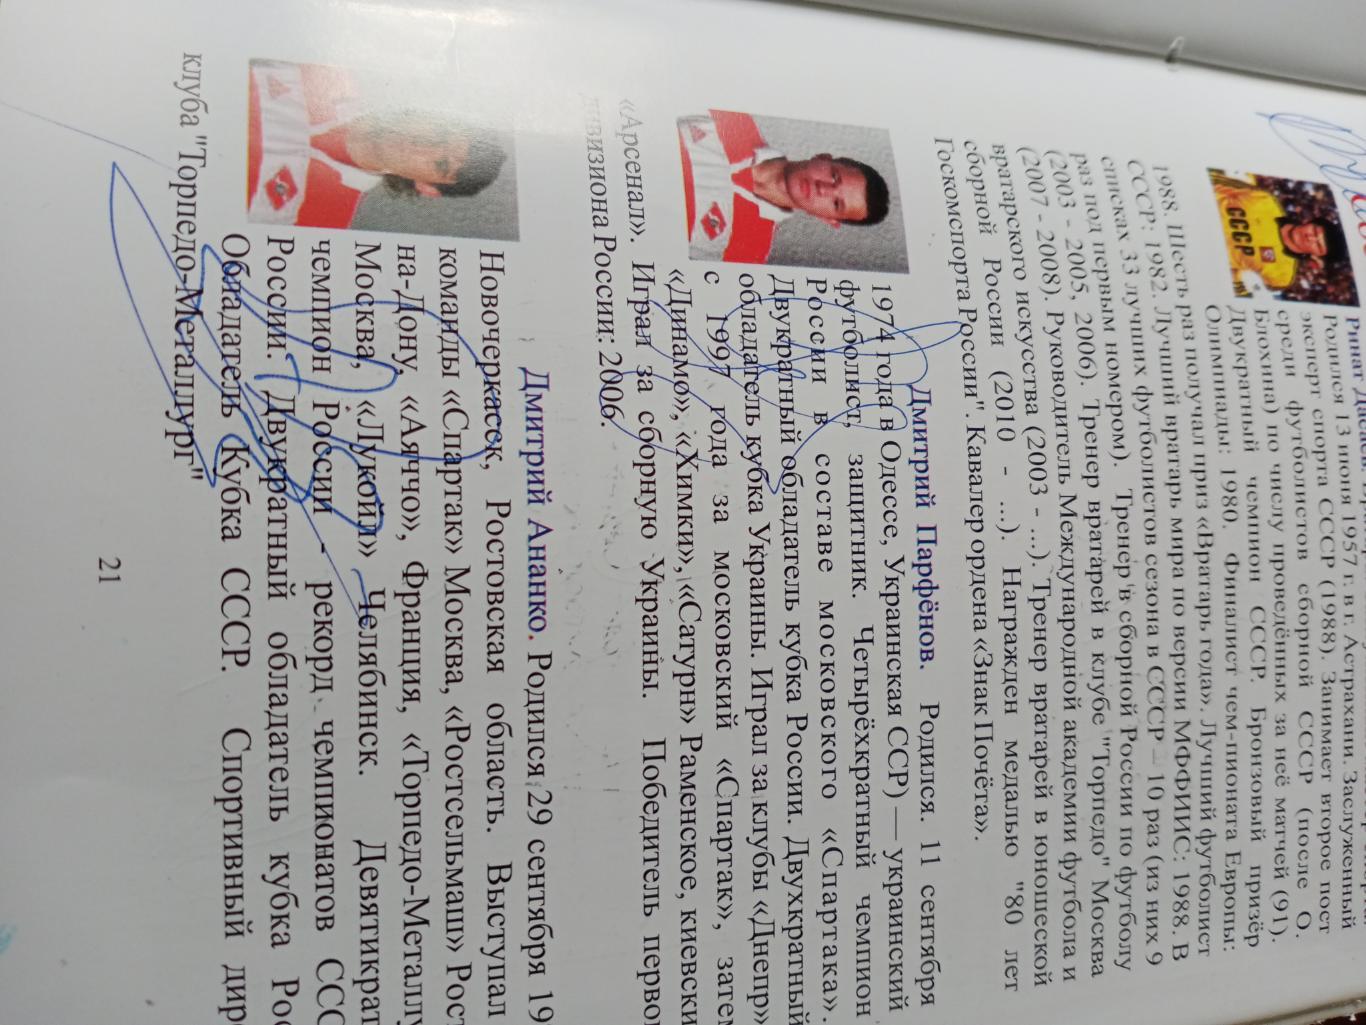 Ринат Дасаев.
Родился 13 июня 1957 г. в г. Астрахани. Заслуженный
эксперт спорта СССР (1988). Занимает второе пост
среди футболистов сборной СССР (после О.
Блохина) по числу проведённых за неё матчей (91).
Двукратный чемпион СССР. Бронзовый призёр
Олимпиады: 1980. Финалист чем-пионата Европы:
СССР
1988. Шесть раз получал приз «Вратарь года». Лучший футболист
СССР: 1982. Лучший вратарь мира по версии МФФИИС: 1988. В
списках 33 лучших футболистов сезона в СССР – 10 раз (из них 9
раз под первым номером). Тренер в сборной России по футболу
(2003 - 2005, 2006). Тренер вратарей в клубе "Торпедо" Москва
(2007 - 2008). Руководитель Международной академии футбола и
вратарского искусства (2003 - ...). Тренер вратарей в юношеской
сборной России (2010 - ...). Награжден медалью "80 лет
Госкомспорта России". Кавалер ордена «Знак Почёта».
Дмитрий Парфёнов. Родился. 11 сентября
1974 года в Одессе, Украинская ССР) — украинский
футболист, защитник. Четырёхкратный чемпион
России в составе московского «Спартака».
Двукратный обладатель кубка России. Двухкратный
обладатель кубка Украины. Играл за клубы «Днепр»
с 1997 года за московский «Спартак», затем
«Динамо», «Химки», «Сатурн» Раменское, киевски
«Арсенал». Играл за сборную Украины. Победитель перво
дивизиона России: 2006.
Дмитрий Ананко. Родился 29 сентября 19
Новочеркасск, Ростовская область. Выступал
команды «Спартак» Москва, «Ростсельмаш» Рост
на-Дону, «Аяччо», Франция, «Торпедо-Металлу
Москва, «Лукойл» Челябинск. Девятикрат
чемпион России - рекорд чемпионатов ССС
России. Двукратный обладатель кубка Рос
Обладатель Кубка СССР. Спортивный дир
клуба "Торпедо-Металлург"
21